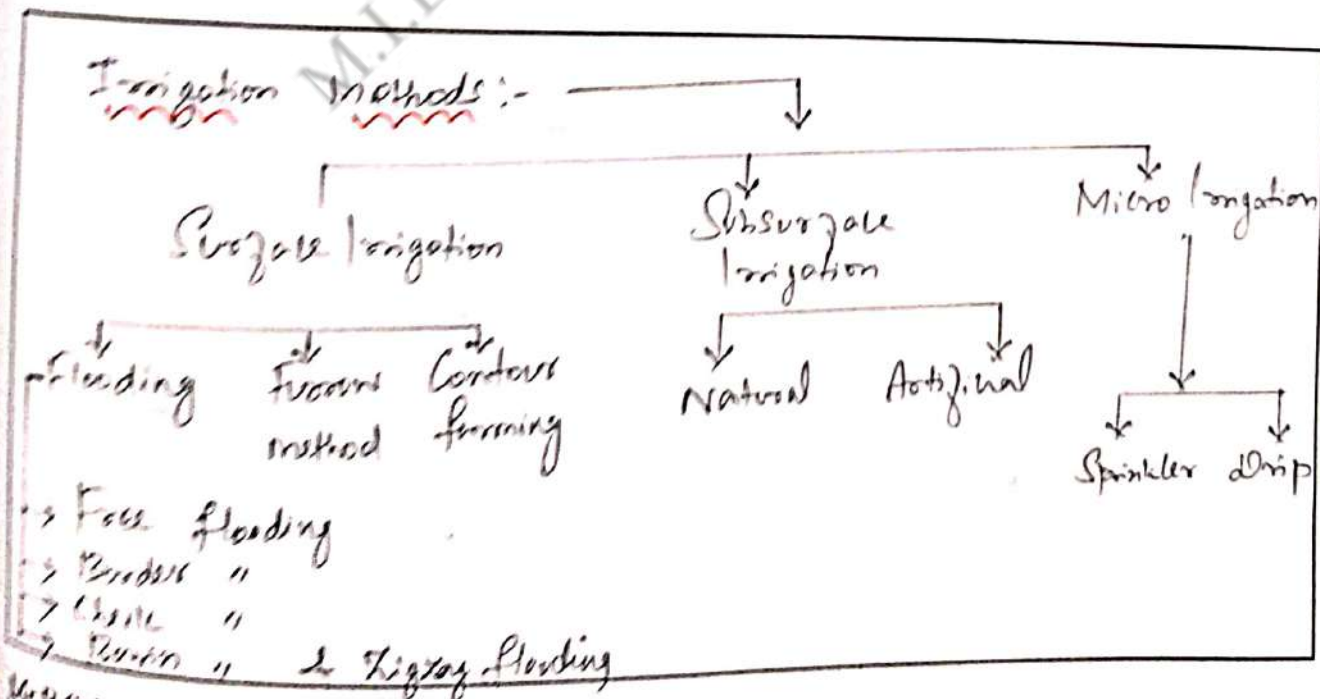 M.I.
Irrigation Methods :-
Surface Irrigation
Subsurface
Irrigation
Micro Irrigation
Flooding
Furrow
method
Contour
farming
Natural
Artificial
Sprinkler
Drip
Free flooding
Border "
Check "
Basin " & Zigzag flooding